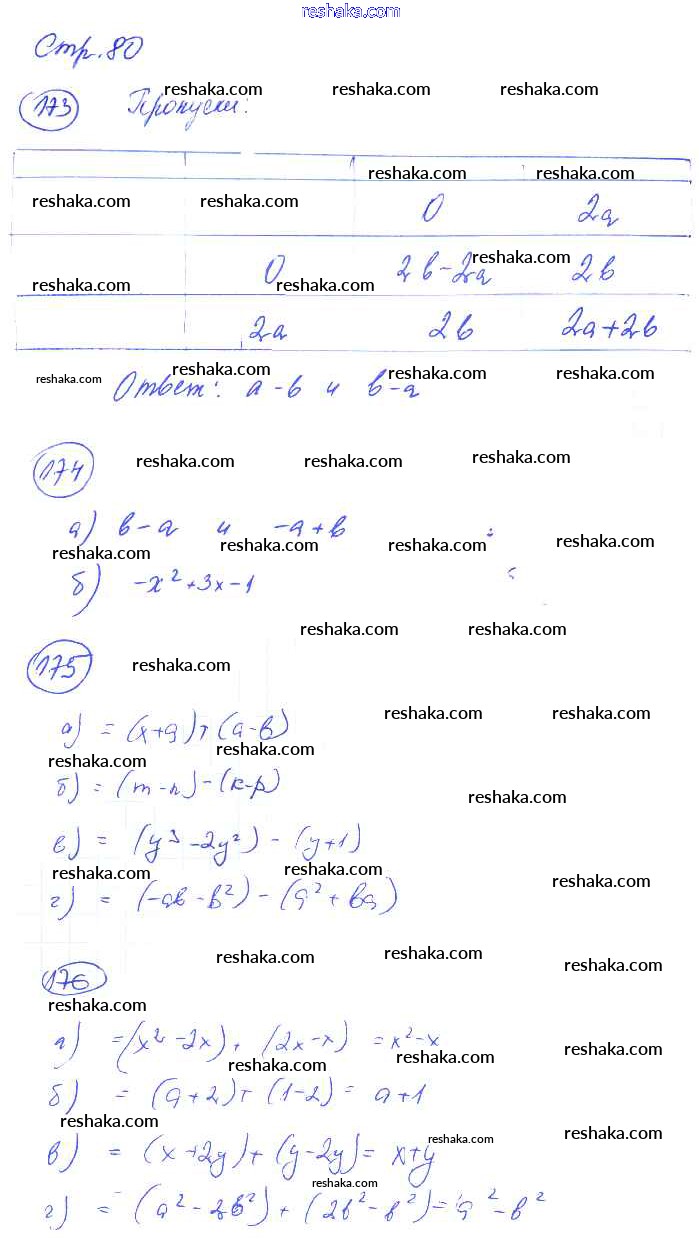 reshaka.com
Стр. 80
173 Пропуски:
reshaka.com reshaka.com reshaka.com
reshaka.com reshaka.com
reshaka.com reshaka.com 0 2a
reshaka.com
0 2b-2a 2b
reshaka.com reshaka.com reshaka.com
2a 2b 2a+2b
reshaka.com reshaka.com reshaka.com reshaka.com
Ответ: a-b и b-a
174 reshaka.com reshaka.com reshaka.com
а) b-a и -a+b
reshaka.com reshaka.com reshaka.com reshaka.com
б) -x²+3x-1
reshaka.com reshaka.com
175 reshaka.com
reshaka.com reshaka.com
а) = (x+a)+(a-b)
reshaka.com reshaka.com
б) = (m-n)-(k-p)
reshaka.com
в) = (y³-2y²)-(y+1)
reshaka.com reshaka.com reshaka.com
г) = (-ab-b²)-(a²+ba)
reshaka.com reshaka.com reshaka.com
176
reshaka.com
а) =(x²-2x)+(2x-x) =x²-x
reshaka.com reshaka.com reshaka.com
б) = (a+2)+(1-2)= a+1
reshaka.com reshaka.com reshaka.com
в) = (x+2y)+(y-2y)= x+y
reshaka.com
г) = (a²-2b²)+(2b²-b²)= a²-b²